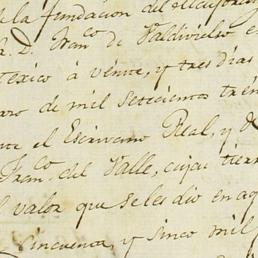 de la fundacion del
D. Fran.co de Valdivielso e
Mexico á veinte, y tres dias
ero de mil setecientos trein
te el Escrivano Real, y d
Fran.co del Valle, cujas tierr
l valor que se les dio en aq
Cincuenta, y sinco mil